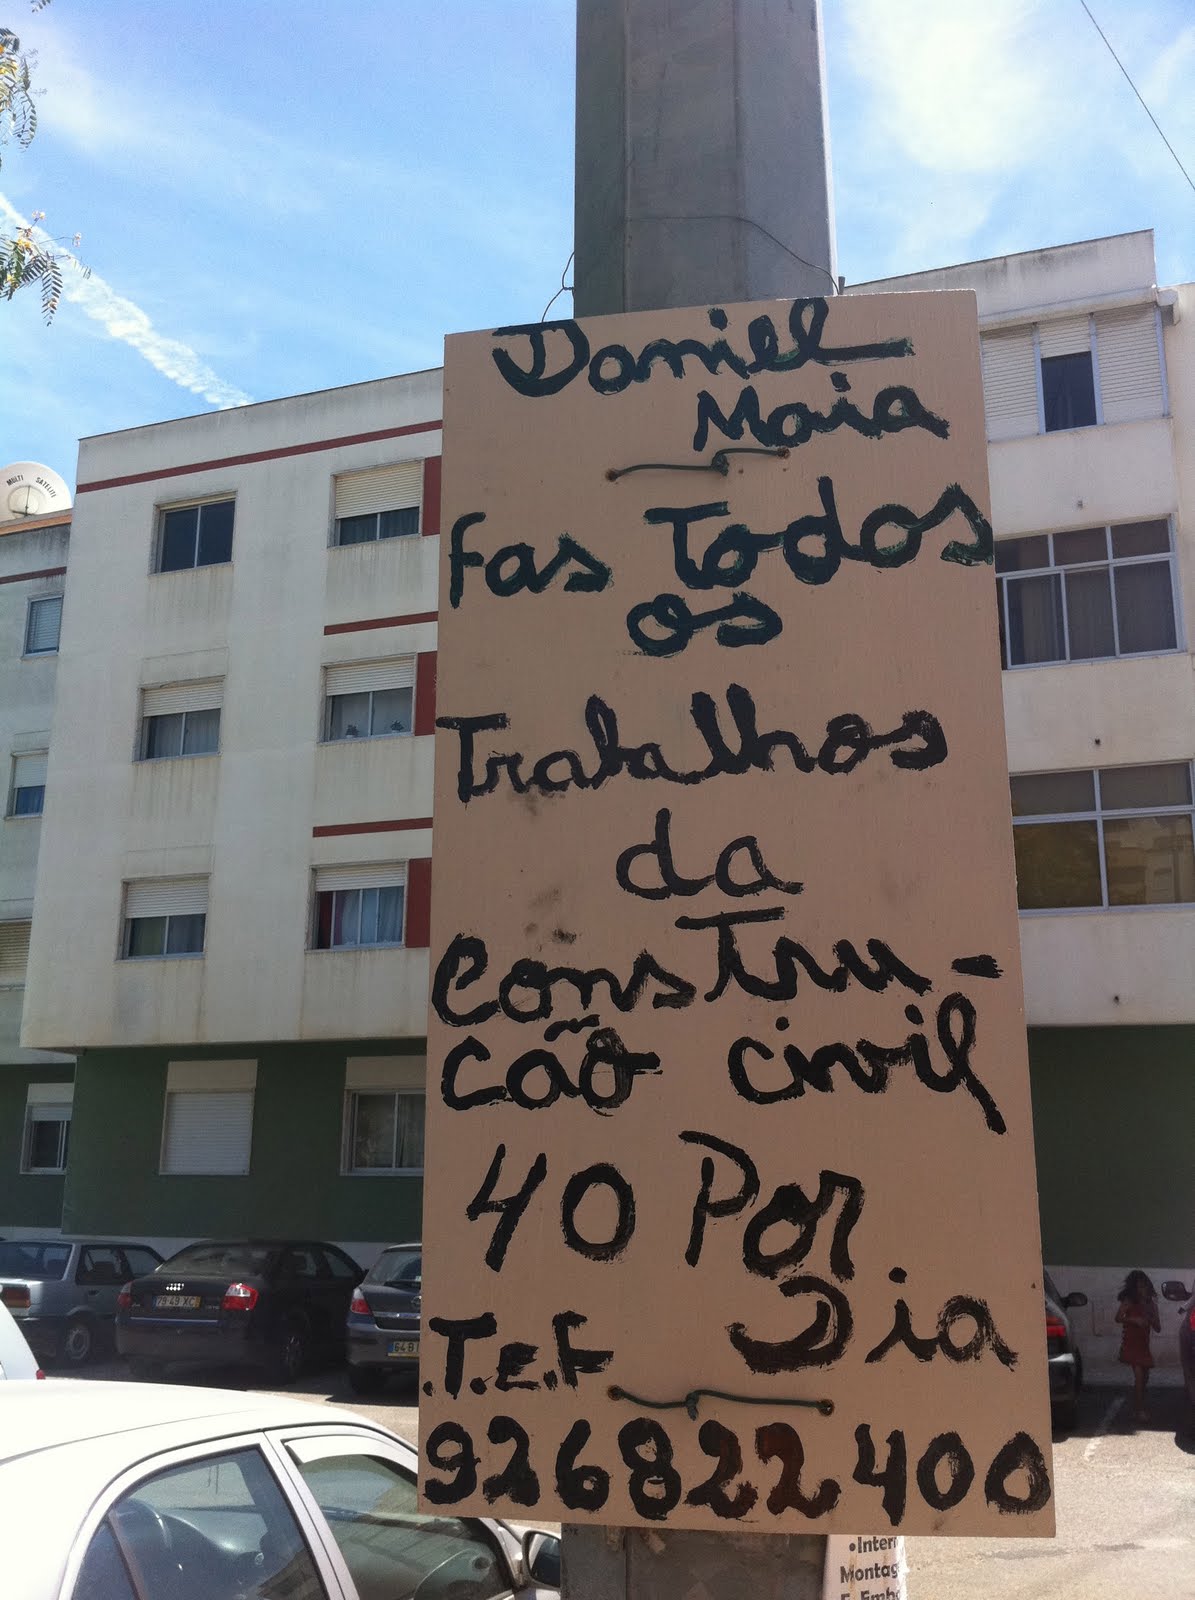 MULTI SATELITE
Daniel
Maia
Fas Todos
os
Trabalhos
da
constru-
cão civil
40 Por
Dia
.T.e.F
926822400
79-49-XC
64 B
•Interi
Montag
E Emb